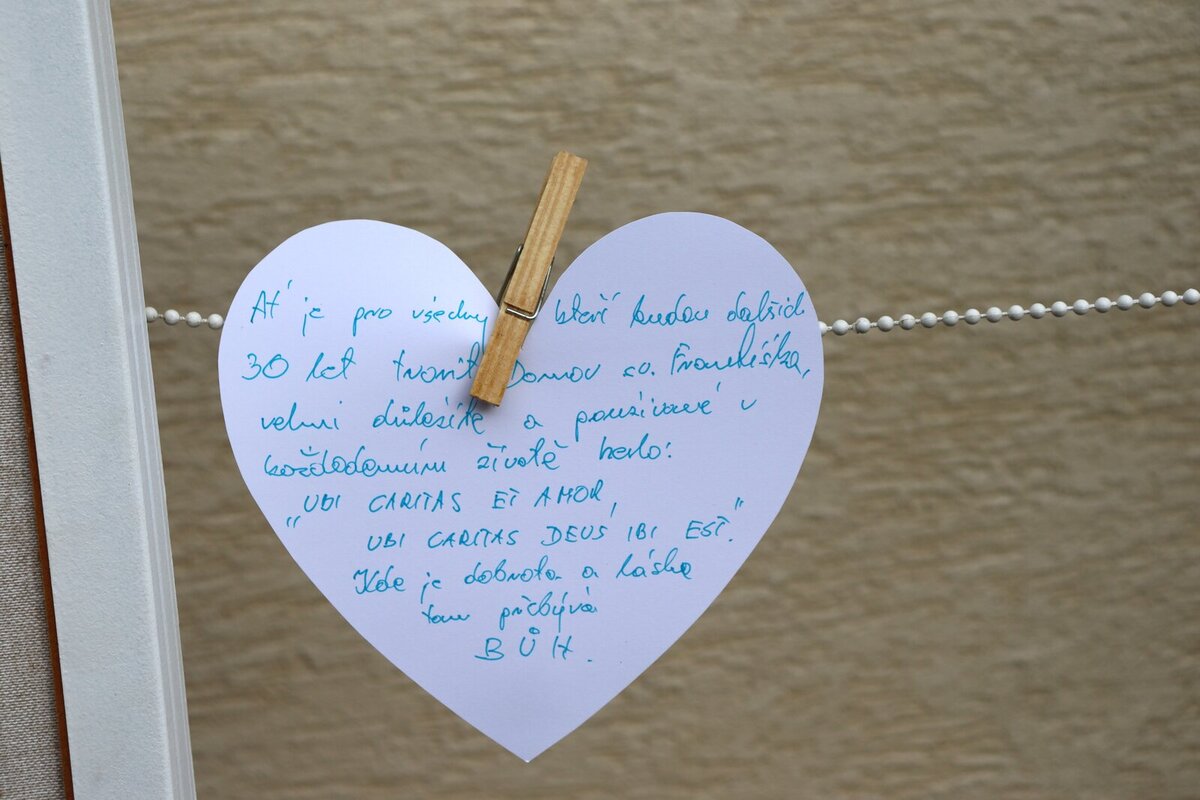 Ať je pro všechny kteří budou dalších
30 let tvořit Domov sv. Františka,
velmi důležité a používané v
každodenním životě heslo:
"UBI CARITAS ET AMOR,
UBI CARITAS DEUS IBI EST."
Kde je dobrota a láska
tam přebývá
BŮH.